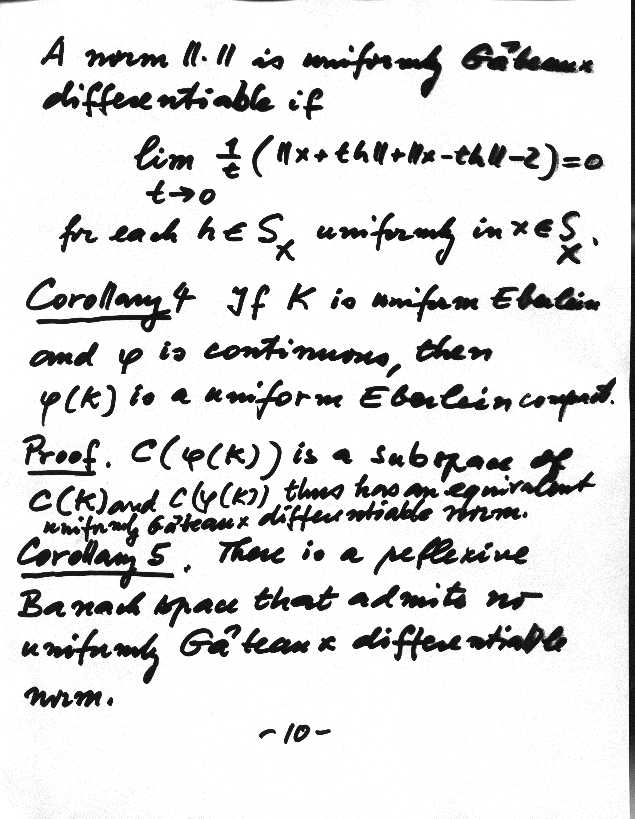 A norm ||·|| is uniformly Gâteaux
differentiable if
lim 1/t (||x+th||+||x-th||-2)=0
t→0
for each h∈S_X uniformly in x∈S_X.
Corollary 4 If K is uniform Eberlein
and φ is continuous, then
φ(K) is a uniform Eberlein compact.
Proof. C(φ(K)) is a subspace of
C(K) and C(φ(K)) thus has an equivalent
uniformly Gâteaux differentiable norm.
Corollary 5. There is a reflexive
Banach space that admits no
uniformly Gâteaux differentiable
norm.
-10-